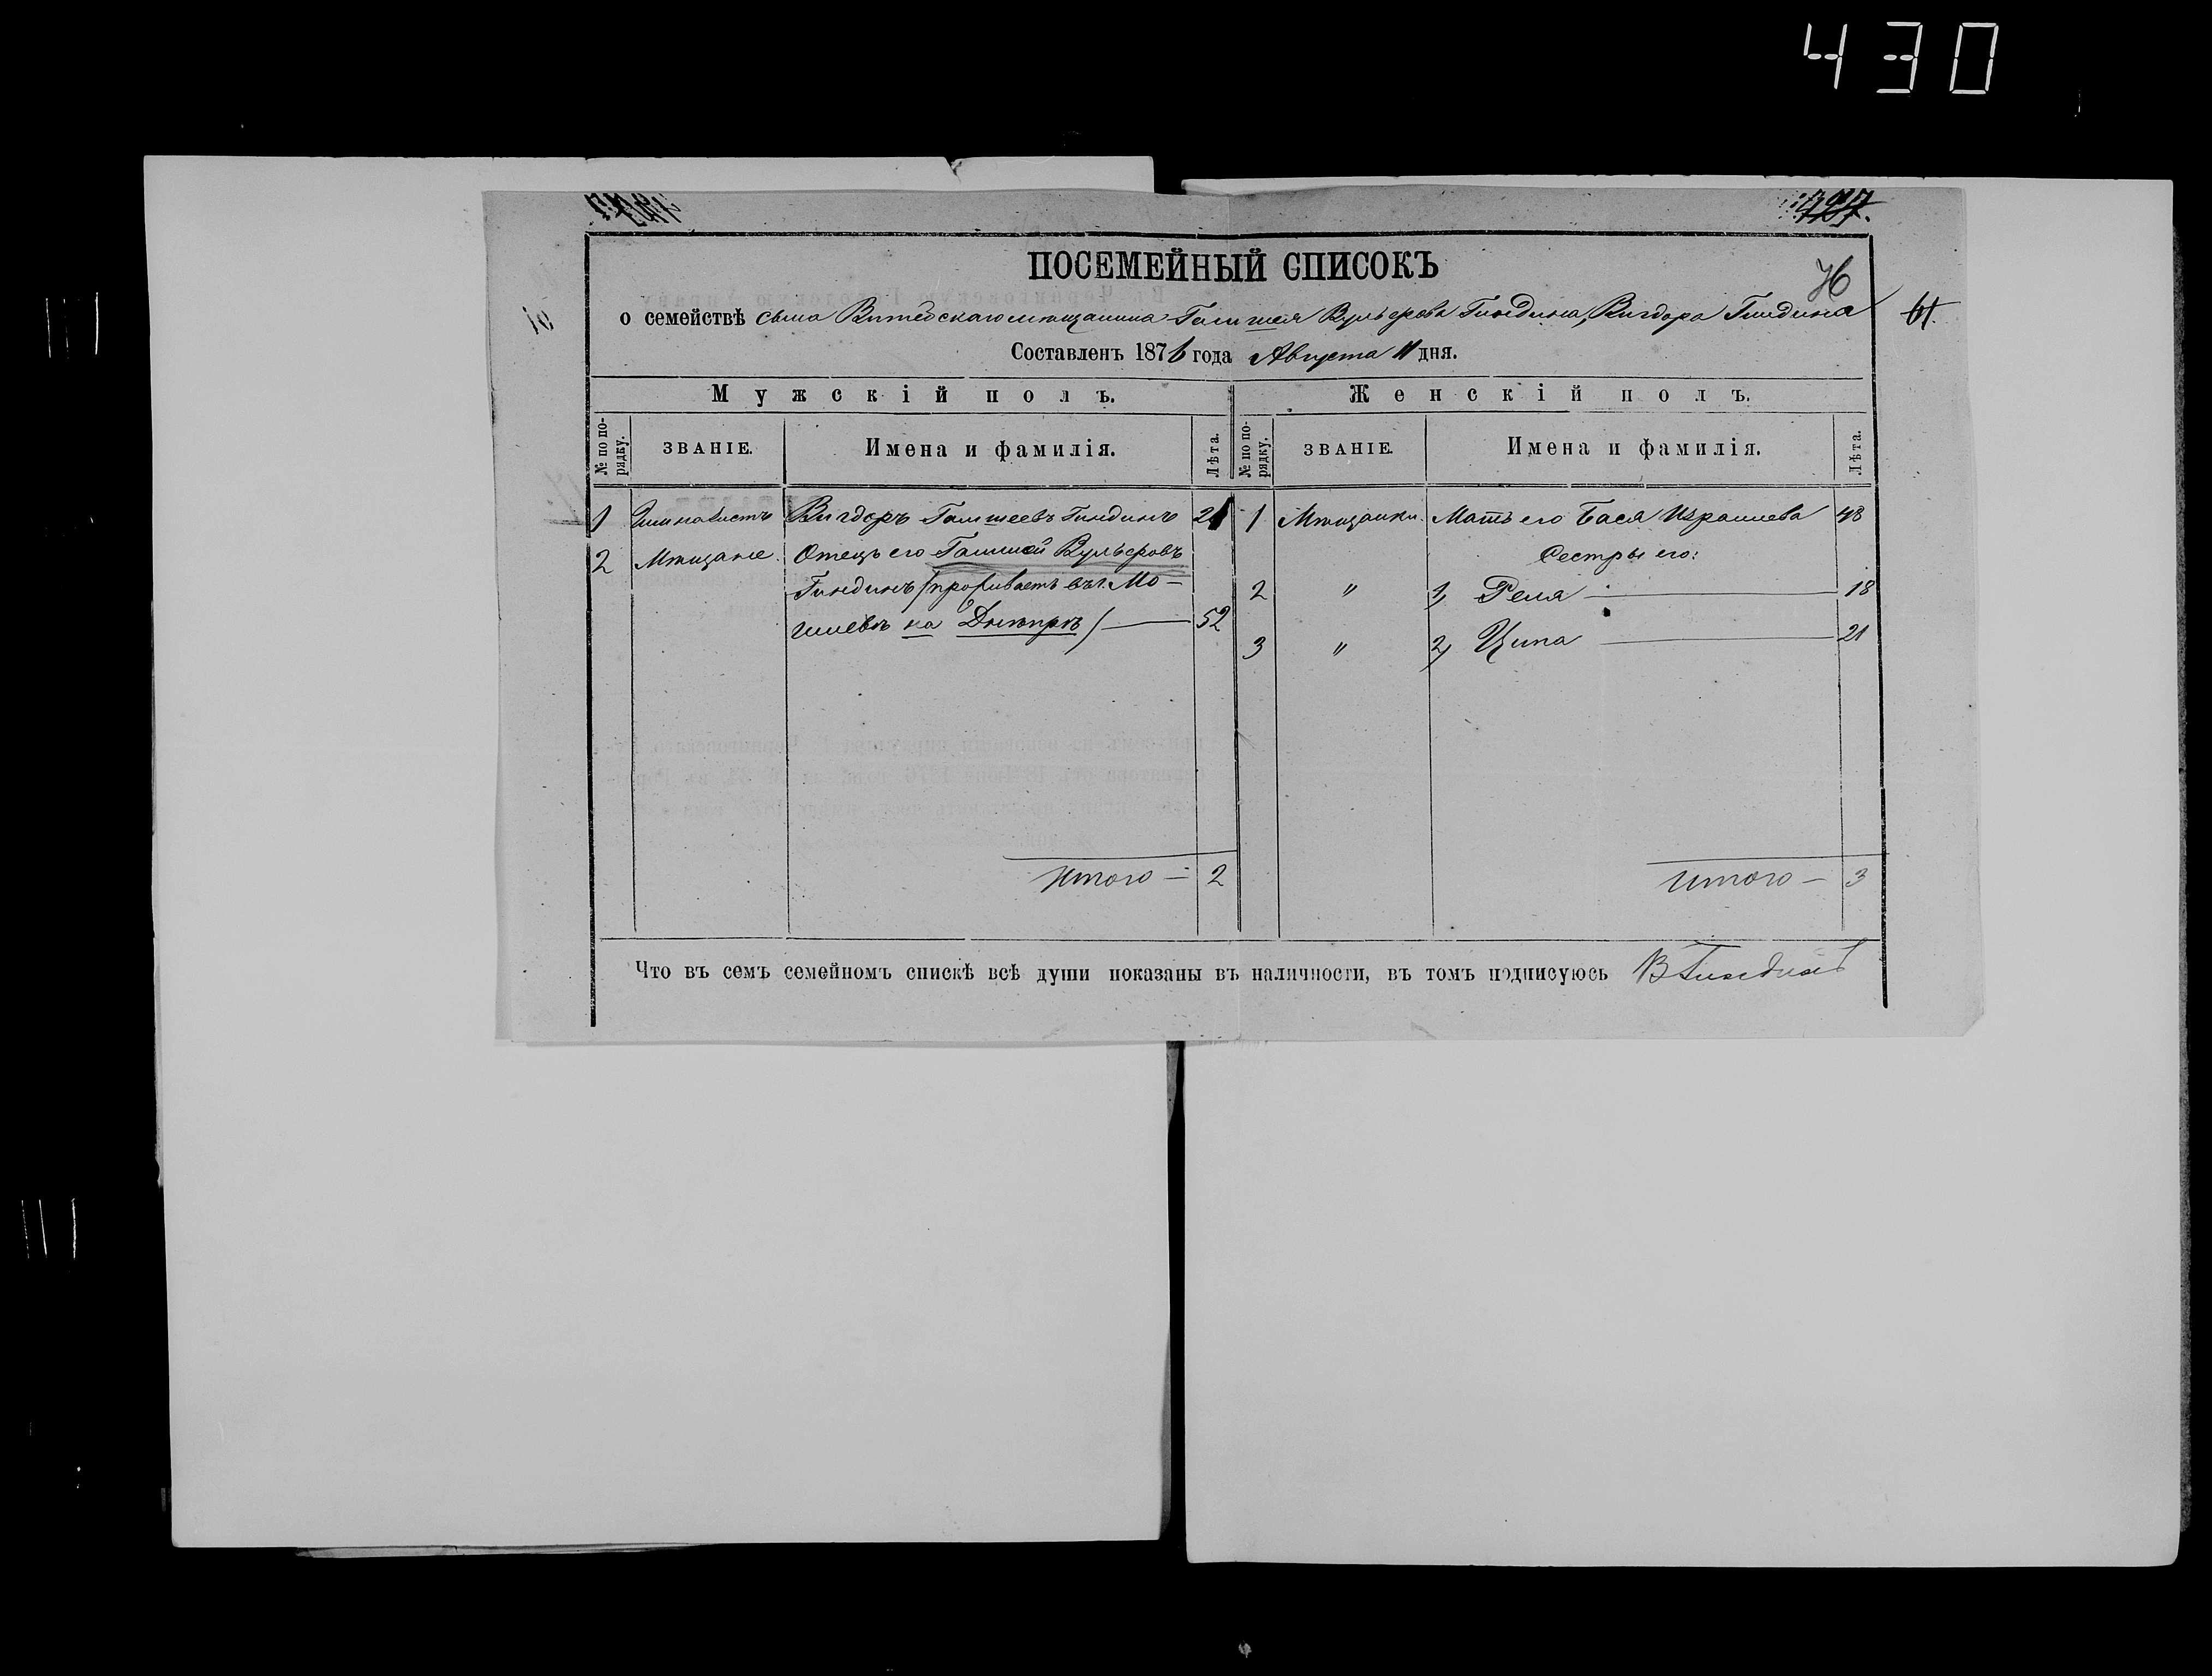 430
ПОСЕМЕЙНЫЙ СПИСОКЪ
о семействѣ сына Витебскаго мѣщанина Гамшея Вульфова Гиндина, Вигдора Гиндина
61.
Составленъ 1876 года Августа 11 дня.
Мужскій полъ. Женскій полъ.
№ по порядку. ЗВАНІЕ. Имена и фамилія. Лѣта. № по порядку. ЗВАНІЕ. Имена и фамилія. Лѣта.
1 Гимназистъ Вигдоръ Гамшеевъ Гиндинъ 21 1 Мѣщанки. Мать его Бася Израилева 48
2 Мѣщане. Отецъ его Гамшей Сестры его:
Гиндинъ /проживаетъ въ г. Мо- 2 " 1, Реля 18
гилевѣ на Днѣпрѣ/ 52 3 " 2, Ципа 21
Итого — 2 Итого — 3
Что въ семъ семейномъ спискѣ всѣ души показаны въ наличности, въ томъ подписуюсь В Гиндинъ